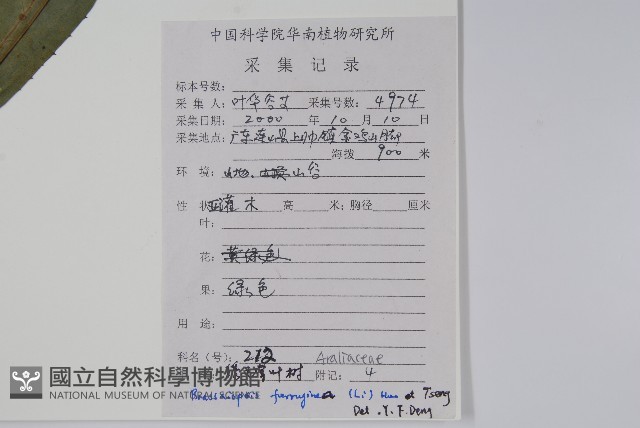 中国科学院华南植物研究所
采集记录
标本号数:
采集人: 叶华谷 采集号数: 4974
采集日期: 2000 年 10 月 10 日
采集地点: 广东连山县上帅镇金鸡山脚
海拨 900 米
环境: 山地、山谷
性状 灌木 高 米; 胸径 厘米
叶:
花: 黄绿色
果: 绿色
用途:
科名(号): 212 Araliaceae
叶树 附记: 4
國立自然科學博物館
NATIONAL MUSEUM OF NATURAL SCIENCE
Brassaiopsis ferruginea (Li) Hoo et Tseng
Det. Y. F. Deng